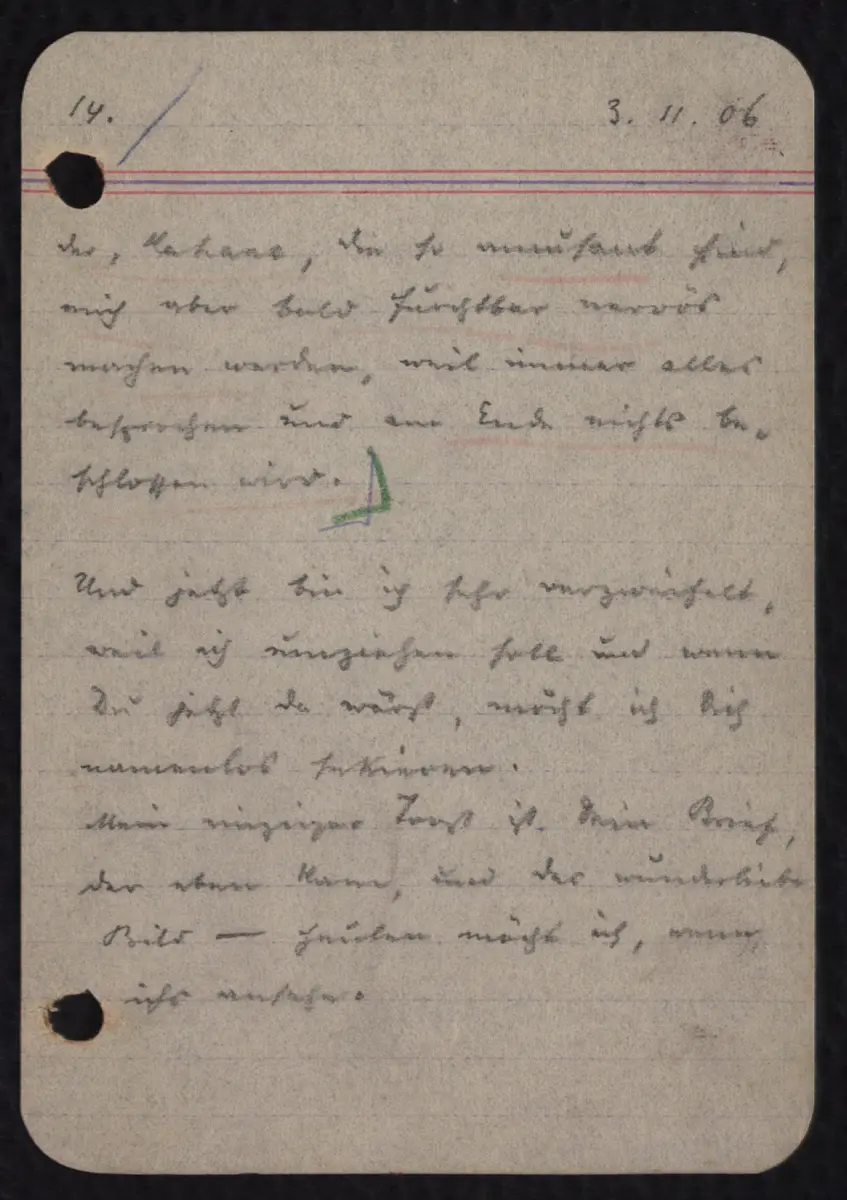 14. 3. 11. 06
der, die so amüsant sind,
mich aber bald furchtbar nervös
machen werden, weil immer alles
besprochen und am Ende nichts be-
schlossen wird.
Und jetzt bin ich sehr verzweifelt,
weil ich umziehen soll und wenn
Du jetzt da wärst, möcht ich Dich
namenlos sekieren.
Mein einziger Trost ist Dein Brief,
der eben kam, und das wunderliebe
Bild — heulen möcht ich, wenn
ichs ansehe.